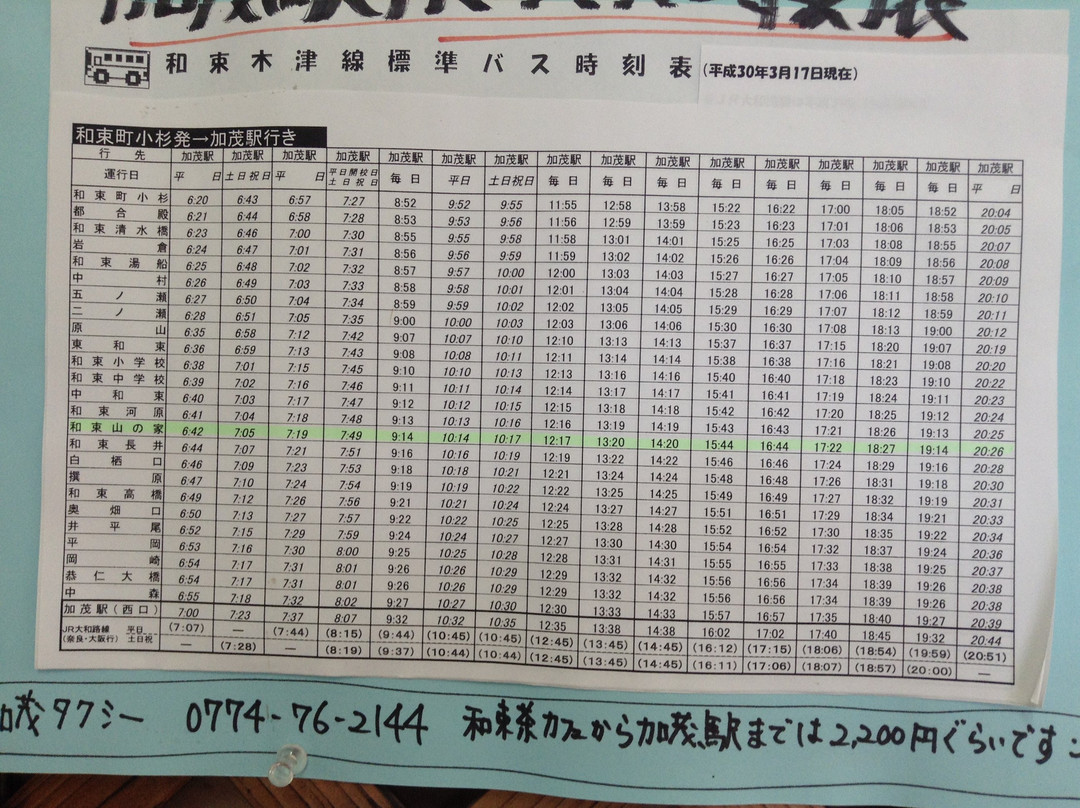 和束木津線標準バス時刻表 (平成30年3月17日現在)
和束町小杉発→加茂駅行き
行先 加茂駅 加茂駅 加茂駅 加茂駅 加茂駅 加茂駅 加茂駅 加茂駅 加茂駅 加茂駅 加茂駅 加茂駅 加茂駅 加茂駅 加茂駅 加茂駅
運行日 平日 土日祝日 平日 平日開校日土日祝日 毎日 平日 土日祝日 毎日 毎日 毎日 毎日 毎日 毎日 毎日 毎日 平日
和束町小杉 6:20 6:43 6:57 7:27 8:52 9:52 9:55 11:55 12:58 13:58 15:22 16:22 17:00 18:05 18:52 20:04
都合殿 6:21 6:44 6:58 7:28 8:53 9:53 9:56 11:56 12:59 13:59 15:23 16:23 17:01 18:06 18:53 20:05
和束清水橋 6:23 6:46 7:00 7:30 8:55 9:55 9:58 11:58 13:01 14:01 15:25 16:25 17:03 18:08 18:55 20:07
岩倉 6:24 6:47 7:01 7:31 8:56 9:56 9:59 11:59 13:02 14:02 15:26 16:26 17:04 18:09 18:56 20:08
和束湯船 6:25 6:48 7:02 7:32 8:57 9:57 10:00 12:00 13:03 14:03 15:27 16:27 17:05 18:10 18:57 20:09
中村 6:26 6:49 7:03 7:33 8:58 9:58 10:01 12:01 13:04 14:04 15:28 16:28 17:06 18:11 18:58 20:10
五ノ瀬 6:27 6:50 7:04 7:34 8:59 9:59 10:02 12:02 13:05 14:05 15:29 16:29 17:07 18:12 18:59 20:11
二ノ瀬 6:28 6:51 7:05 7:35 9:00 10:00 10:03 12:03 13:06 14:06 15:30 16:30 17:08 18:13 19:00 20:12
原山 6:35 6:58 7:12 7:42 9:07 10:07 10:10 12:10 13:13 14:13 15:37 16:37 17:15 18:20 19:07 20:19
東和束 6:36 6:59 7:13 7:43 9:08 10:08 10:11 12:11 13:14 14:14 15:38 16:38 17:16 18:21 19:08 20:20
和束小学校 6:38 7:01 7:15 7:45 9:10 10:10 10:13 12:13 13:16 14:16 15:40 16:40 17:18 18:23 19:10 20:22
和束中学校 6:39 7:02 7:16 7:46 9:11 10:11 10:14 12:14 13:17 14:17 15:41 16:41 17:19 18:24 19:11 20:23
中和束 6:40 7:03 7:17 7:47 9:12 10:12 10:15 12:15 13:18 14:18 15:42 16:42 17:20 18:25 19:12 20:24
和束河原 6:41 7:04 7:18 7:48 9:13 10:13 10:16 12:16 13:19 14:19 15:43 16:43 17:21 18:26 19:13 20:25
和束山の家 6:42 7:05 7:19 7:49 9:14 10:14 10:17 12:17 13:20 14:20 15:44 16:44 17:22 18:27 19:14 20:26
和束長井 6:44 7:07 7:21 7:51 9:16 10:16 10:19 12:19 13:22 14:22 15:46 16:46 17:24 18:29 19:16 20:28
白栖口 6:46 7:09 7:23 7:53 9:18 10:18 10:21 12:21 13:24 14:24 15:48 16:48 17:26 18:31 19:18 20:30
撰原 6:47 7:10 7:24 7:54 9:19 10:19 10:22 12:22 13:25 14:25 15:49 16:49 17:27 18:32 19:19 20:31
和束高橋 6:49 7:12 7:26 7:56 9:21 10:21 10:24 12:24 13:27 14:27 15:51 16:51 17:29 18:34 19:21 20:33
奥畑口 6:50 7:13 7:27 7:57 9:22 10:22 10:25 12:25 13:28 14:28 15:52 16:52 17:30 18:35 19:22 20:34
井平尾 6:52 7:15 7:29 7:59 9:24 10:24 10:27 12:27 13:30 14:30 15:54 16:54 17:32 18:37 19:24 20:36
平岡 6:53 7:16 7:30 8:00 9:25 10:25 10:28 12:28 13:31 14:31 15:55 16:55 17:33 18:38 19:25 20:37
岡崎 6:54 7:17 7:31 8:01 9:26 10:26 10:29 12:29 13:32 14:32 15:56 16:56 17:34 18:39 19:26 20:38
恭仁大橋 6:54 7:17 7:31 8:01 9:26 10:26 10:29 12:29 13:32 14:32 15:56 16:56 17:34 18:39 19:26 20:38
中森 6:55 7:18 7:32 8:02 9:27 10:27 10:30 12:30 13:33 14:33 15:57 16:57 17:35 18:40 19:27 20:39
加茂駅(西口) 7:00 7:23 7:37 8:07 9:32 10:32 10:35 12:35 13:38 14:38 16:02 17:02 17:40 18:45 19:32 20:44
JR大和路線 平日 (7:07) — (7:44) (8:15) (9:44) (10:45) (10:45) (12:45) (13:45) (14:45) (16:12) (17:15) (18:06) (18:54) (19:59) (20:51)
(奈良・大阪行) 土日祝 — (7:28) — (8:19) (9:37) (10:44) (10:44) (12:45) (13:45) (14:45) (16:11) (17:06) (18:07) (18:57) (20:00) —
加茂タクシー 0774-76-2144 和束茶カフェから加茂駅までは2,200円ぐらいです